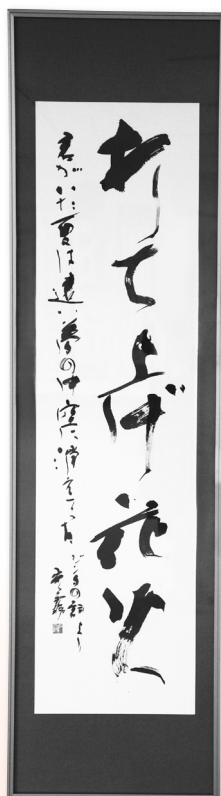 打ち上げ花火
君がいた夏は遠い夢の中空に消えてった ジッタの詞より